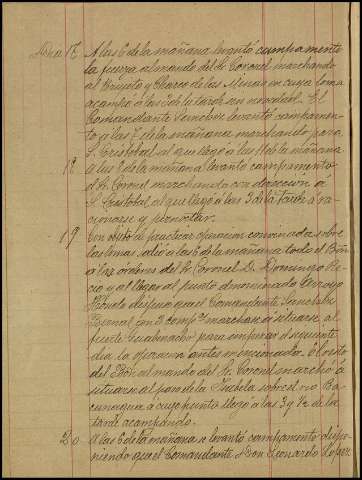 Dia 17 A las 6 de la mañana levantó campamento
la fuerza al mando del Sr. Coronel marchando
al y Charco de las en cuya loma
acampó á las 3 de la tarde sin novedad. El
Comandante Sanchez levantó campamen-
to á las 7 de la mañana marchando para
S. Cristobal al que llegó á las 11 de la mañana
18 á las 8 de la mañana levantó campamento
el Sr. Coronel marchando con dirección á
S. Cristobal al que llegó á las 3 de la tarde á ra-
cionarse y pernoctar.
19 Con objeto de practicar operacion convinada sobre
las lomas, salió á las 6 de la mañana todo el Bon
á las órdenes del Sr. Coronel D. Domingo Re-
cio y al llegar al punto denominado Arroyo
dispuso que el Comandante Sanchez
Bernal con 3 compas marchase á situarse al
fuerte para empezar el siguiente
dia la operacion antes mencionada. El resto
del Bon al mando del Sr. Coronel marchó á
situarse al paso de la sobre el rio Ba-
cunagua á cuyo punto llegó á las 3 y ½ de la
tarde acampando.
20 A las 6 de la mañana se levantó campamento dispo-
niendo que el Comandante Don Leonardo Lopez